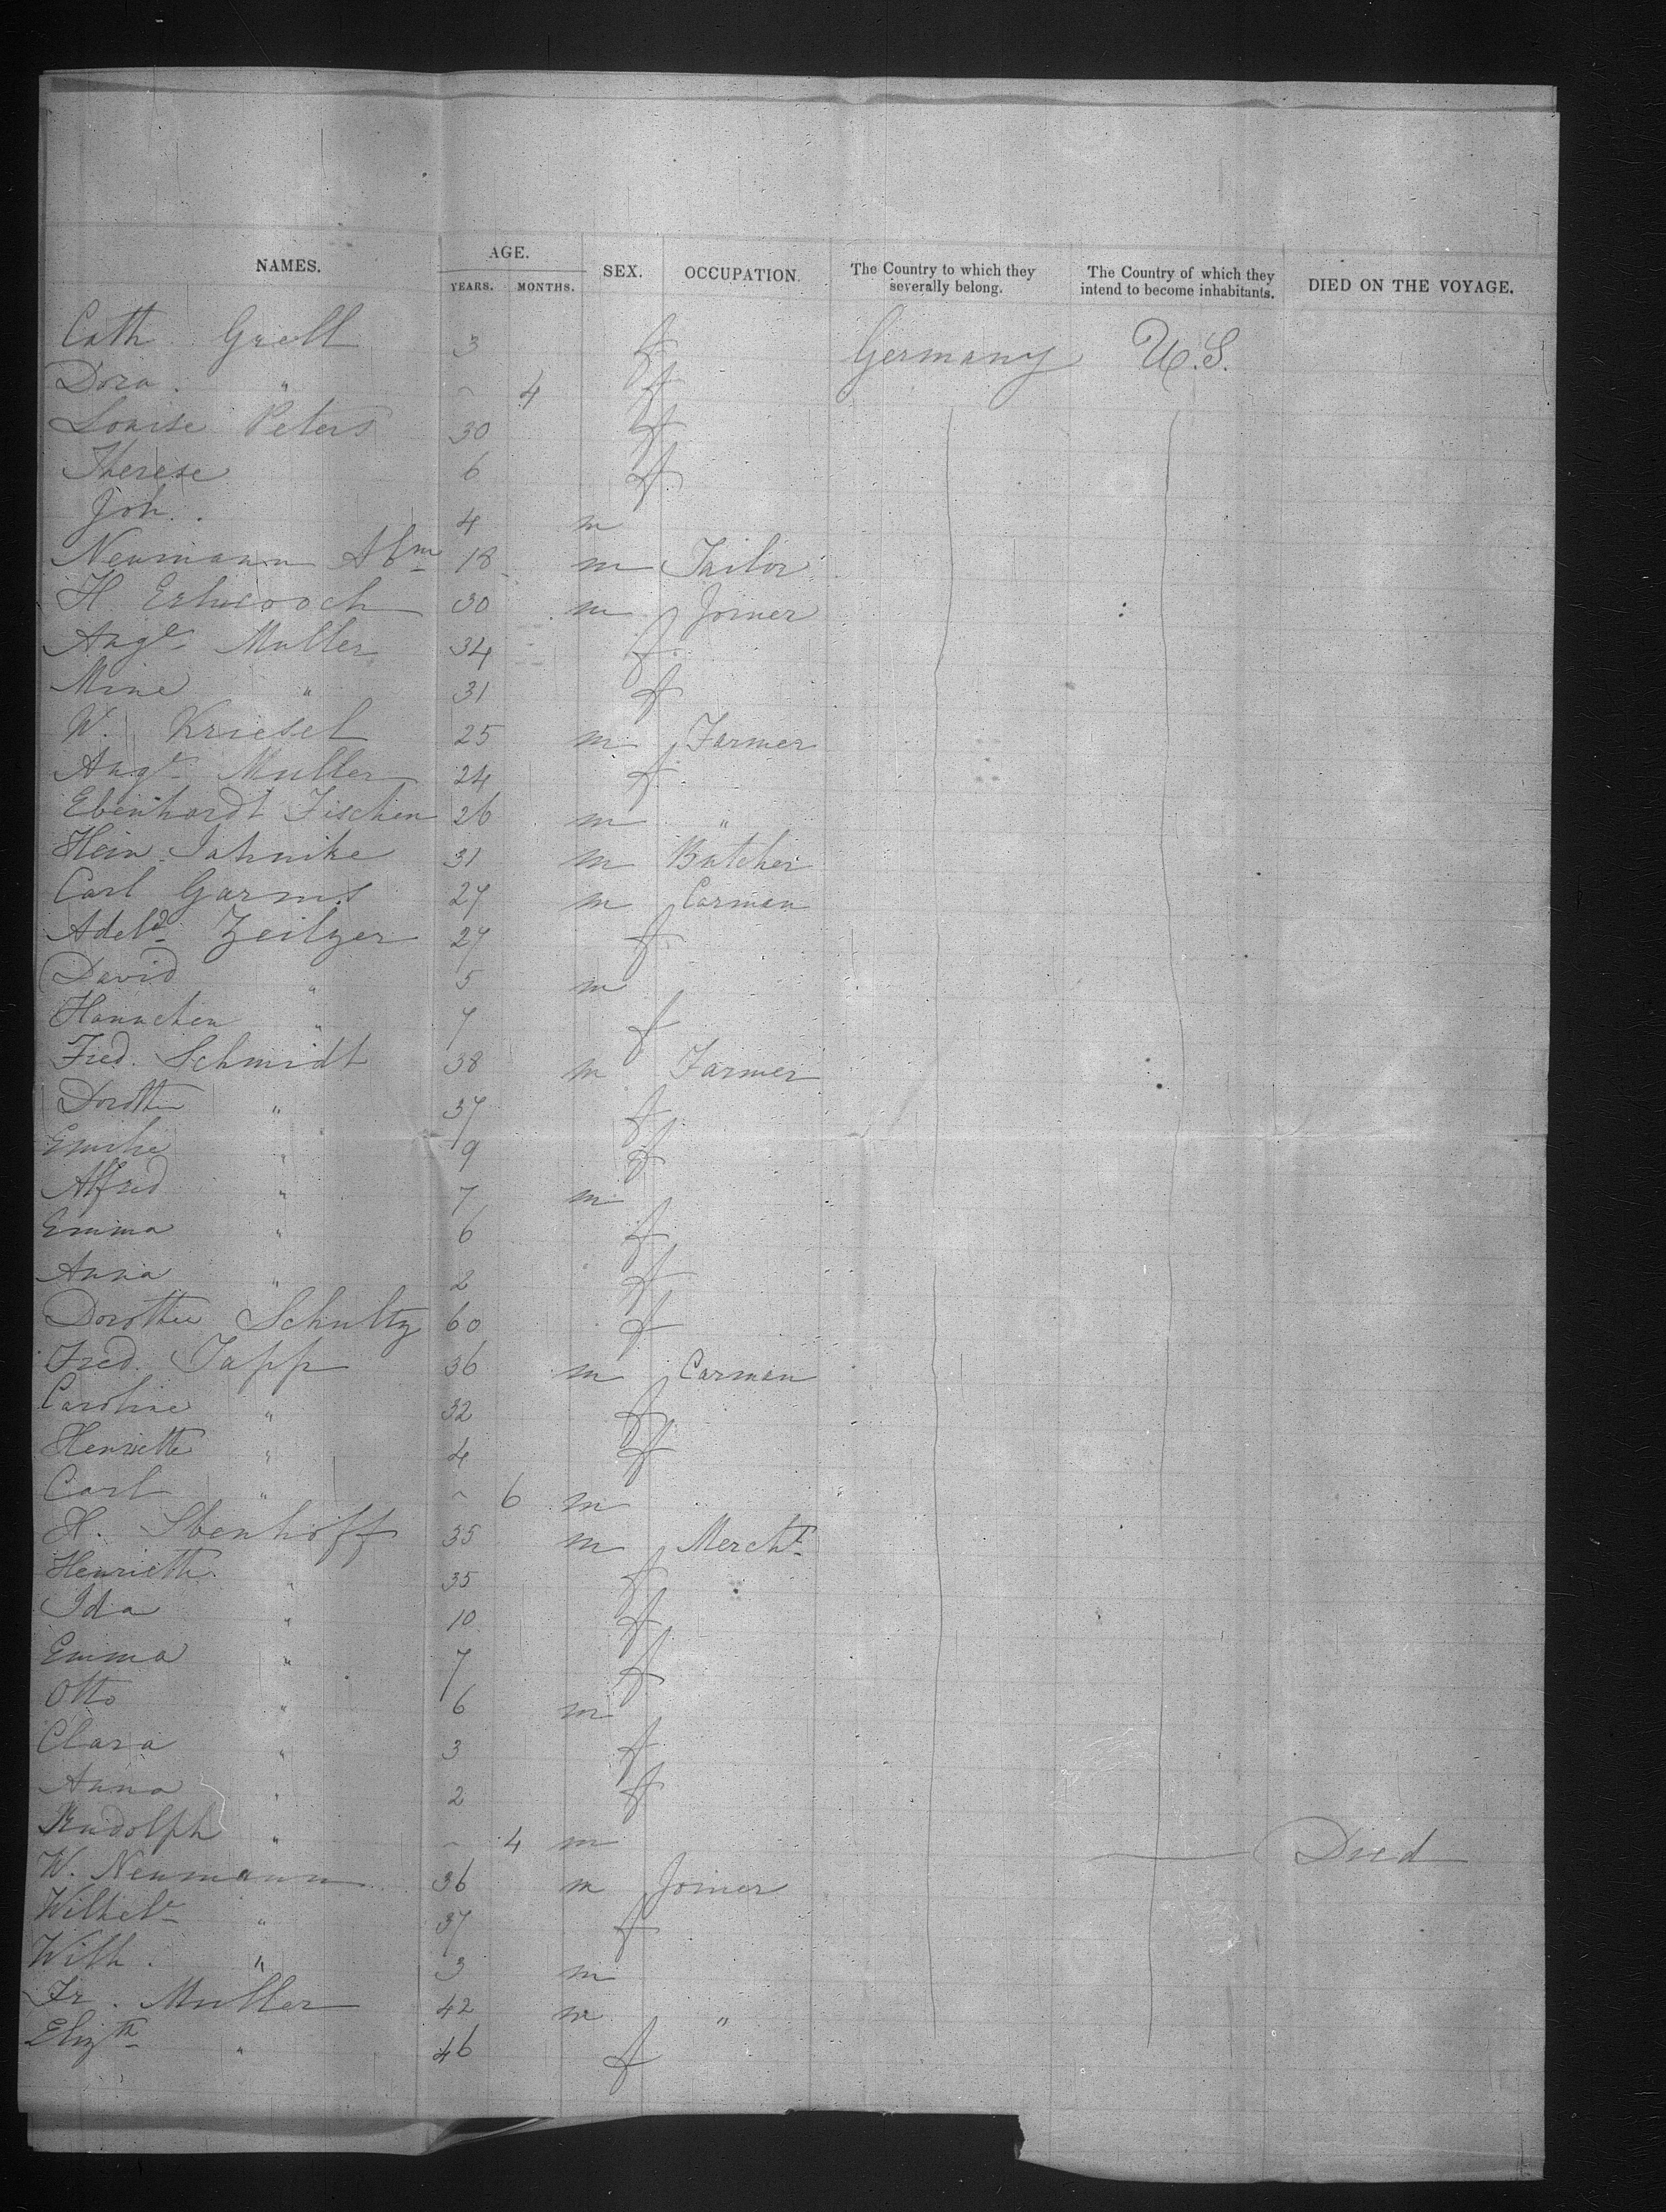 NAMES. AGE. YEARS. MONTHS. SEX. OCCUPATION. The Country to which they severally belong. The Country of which they intend to become inhabitants. DIED ON THE VOYAGE.
Cath. Grell 3 f Germany U.S.
Dora. " ~ 4 f
Louise Peters 30 f
Therese 6 f
Joh. 4 m
Neumann Abm 18 m Tailor
H. 30 m Joiner
Auge Muller 34 f
Mine " 31 f
W. Kriesel 25 m Farmer
Auge Muller 24 f
Ebenhardt Fischen 26 m "
Hein. Jahnike 31 m Butcher
Carl Garms 27 m Carman
Adeld Zeilzer 27 f
David " 5 m
Hannchen " 7 f
Fred. Schmidt 38 m Farmer
Dorothe " 37 f
Emilie " 9 f
Alfred " 7 m
Emma " 6 f
Anna " 2 f
Dorothee Schultz 60 f
Fred. Japp 36 m Carman
Caroline " 32 f
Henriette " 4 f
Carl " ~ 6 m
H. Ibenhoff 35 m Mercht
Henriette " 35 f
Ida " 10 f
Emma " 7 f
Otto " 6 m
Clara " 3 f
Anna " 2 f
Rudolph " ~ 4 m Died
W. Neumann 36 m Joiner
Wilhele " 37 f
Wilh. " 3 m
Fr. Muller 42 m "
Elizth " 46 f